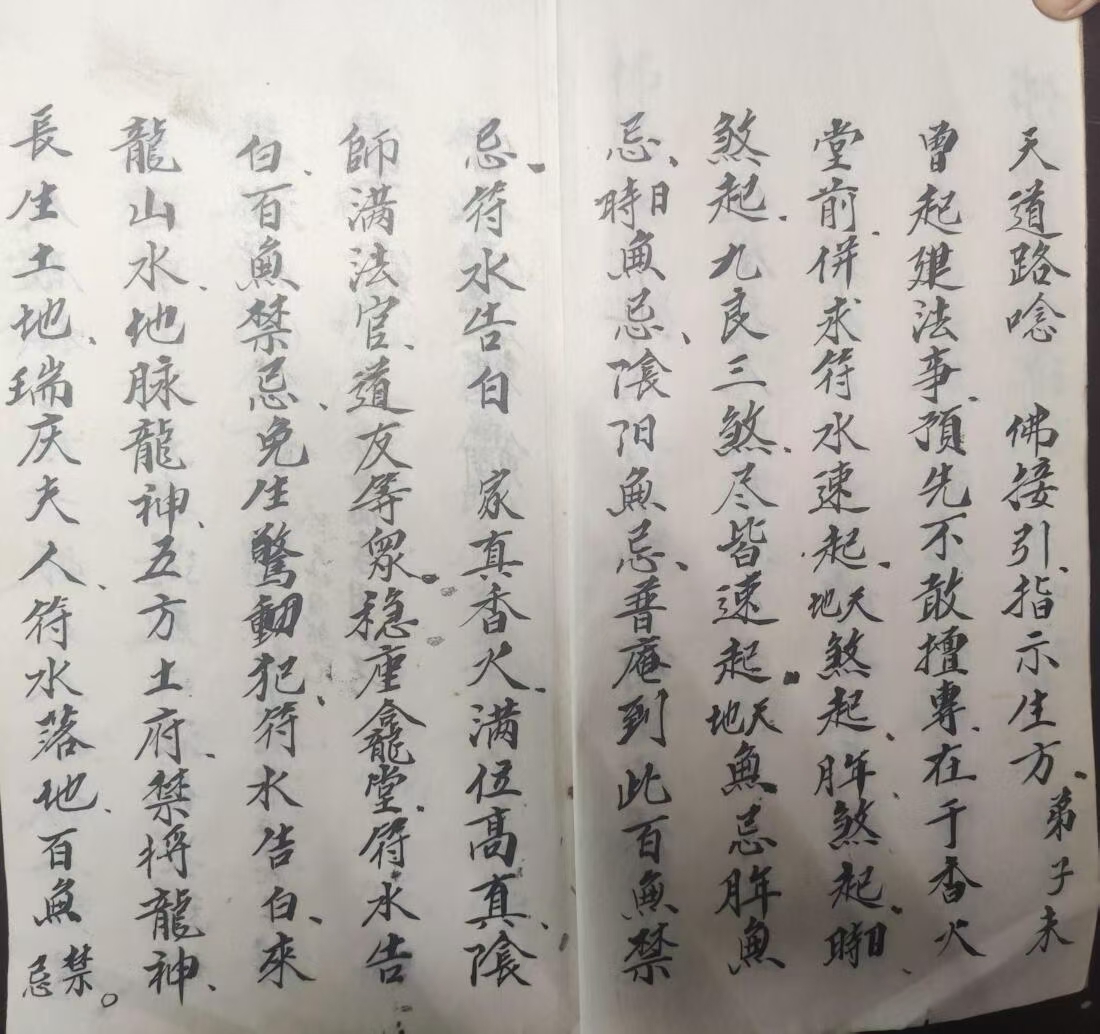 天道路唸　佛接引、指示生方、弟子未
曾起建法事、預先不敢擅專、在于香火
堂前、併求符水速起、天地煞起、年月煞起、日時
煞起、九良三煞、尽皆速起、天地無忌年月無
忌、日時無忌、陰阳無忌、普庵到此百無禁
忌、符水告白　家真香火、满位高真、陰
師满法官、道友等眾、穏座龕堂、符水告
白、百無禁忌、免生驚動犯、符水告白、來
龍山水、地脉龍神、五方土府、禁將龍神、
長生土地、瑞庆夫人、符水落地、百無禁忌。